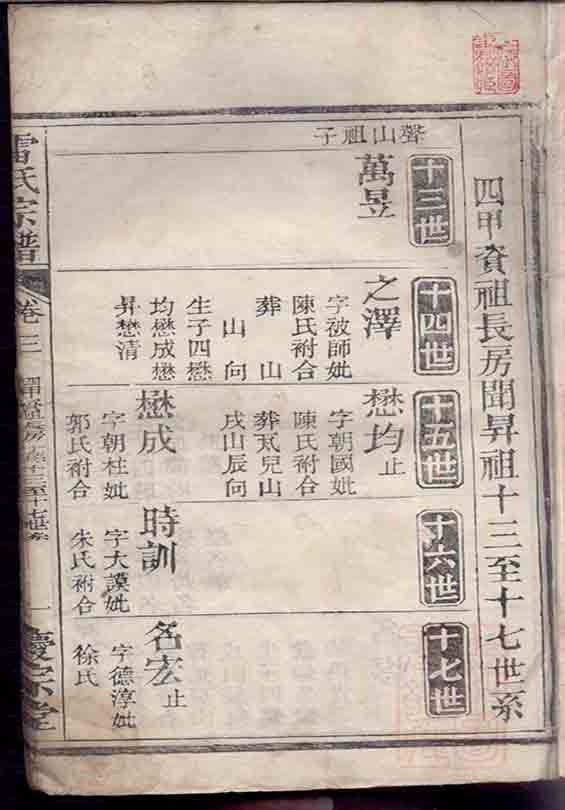 四甲資祖長房聞昇祖十三至十七世系
十三世
聲山祖子
萬昱
十四世
之澤
字被師妣
陳氏祔合
葬山
山向
生子四懋
均懋成懋
昇懋清
十五世
懋均止
字朝國妣
陳氏祔合
葬瓦兒山
戌山辰向
懋成
字朝柱妣
郭氏祔合
十六世
時訓
字大謨妣
朱氏祔合
十七世
名宏止
字德淳妣
徐氏
雷氏宗譜
卷三
十三至十七世系
一
慶宗堂